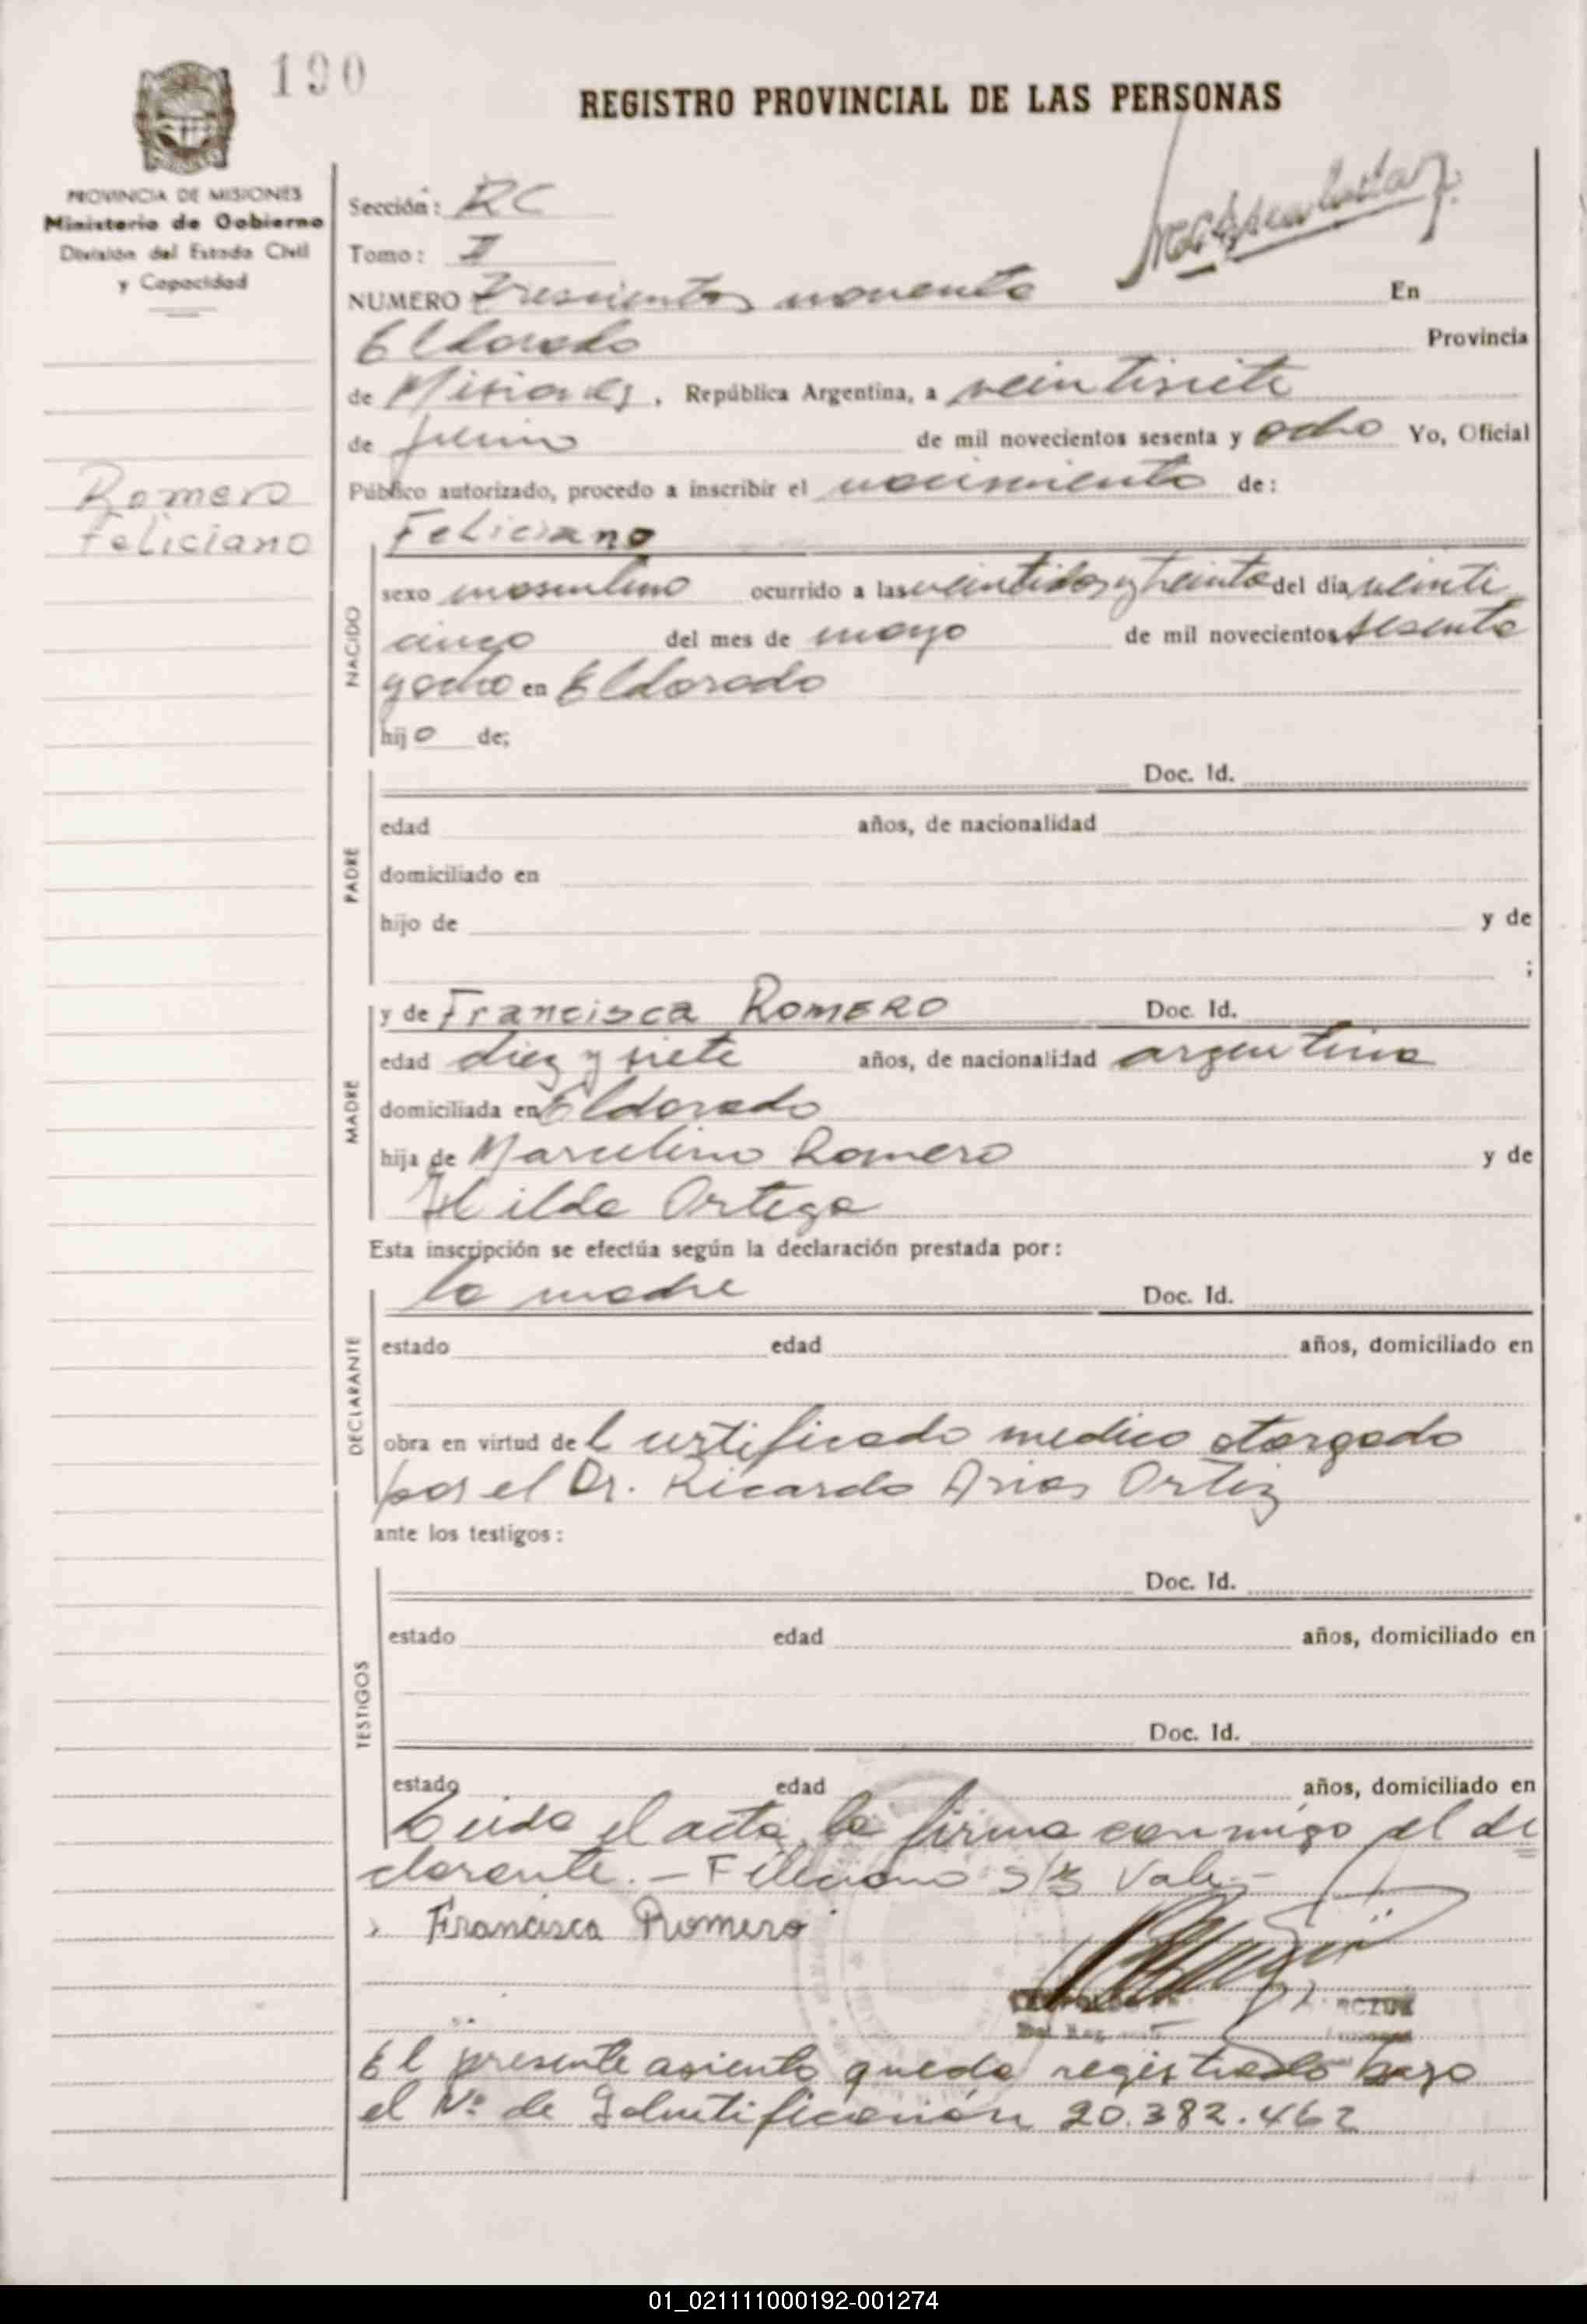 190
REGISTRO PROVINCIAL DE LAS PERSONAS
PROVINCIA DE MISIONES
Ministerio de Gobierno
División del Estado Civil
y Capacidad
Sección: RC
Tomo: II
NUMERO Trescientos noventa En
Eldorado Provincia
de Misiones, República Argentina, a veintisiete
de junio de mil novecientos sesenta y ocho Yo, Oficial
Público autorizado, procedo a inscribir el nacimiento de:
Romero
Feliciano
Feliciano
NACIDO
sexo masculino ocurrido a las veintidos y treinta del día veinte
cinco del mes de mayo de mil novecientos sesenta
y ocho en Eldorado
hijo de;
PADRE
Doc. Id.
edad años, de nacionalidad
domiciliado en
hijo de y de
;
MADRE
y de Francisca ROMERO Doc. Id.
edad diez y siete años, de nacionalidad argentina
domiciliada en Eldorado
hija de Marcelino Romero y de
Hilda Ortega
Esta inscripción se efectúa según la declaración prestada por:
DECLARANTE
la madre Doc. Id.
estado edad años, domiciliado en
obra en virtud del certificado medico otorgado
por el Dr. Ricardo Arias Ortiz
ante los testigos:
TESTIGOS
Doc. Id.
estado edad años, domiciliado en
Doc. Id.
estado edad años, domiciliado en
Leida el acta, la firma conmigo el de
clarante. - Feliciano s/b Vale -
Francisca Romero
El presente asiento queda registrado bajo
el Nº de Identificación 20.382.462
01_021111000192-001274